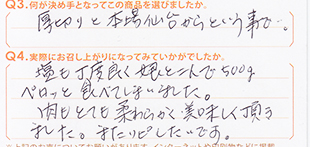 Q3.何が決め手となってこの商品を選びましたか。
厚切りと本場仙台からという事で。
Q4.実際にお召し上がりになってみていかがでしたか。
塩も丁度良く娘と二人で500g
ペロッと食べてしまいました。
肉もとても柔わらかく美味しく頂き
ました。またリピしたいです。